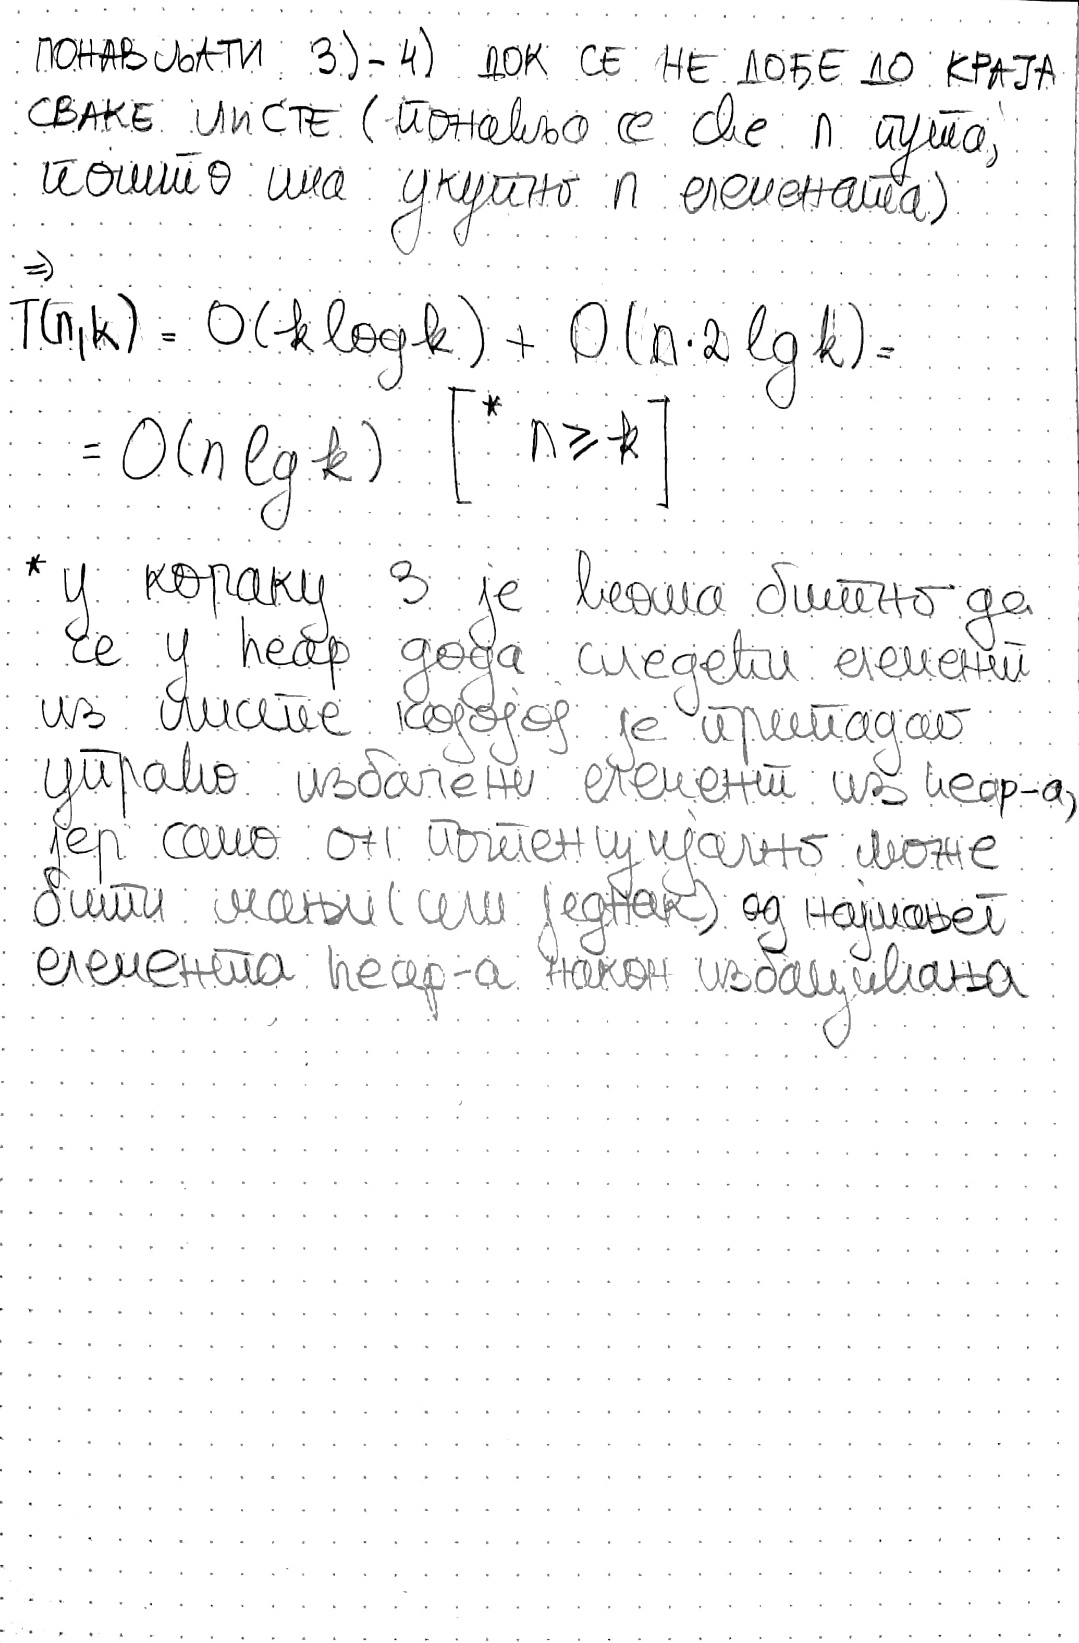 ПОНАВЉАТИ 3)-4) ДОК СЕ НЕ ДОЂЕ ДО КРАЈА
СВАКЕ ЛИСТЕ (понавља се све n пута,
пошто има укупно n елемената)
⇒
T(n,k) = O(k log k) + O(n·2 lg k) =
= O(n lg k) [* n ≥ k]
* у кораку 3 је веома битно да
се у heap дода следећи елемент
из листе којој је припадао
управо избачени елемент из heap-a,
јер само он потенцијално може
бити мањи (или једнак) од најмањег
елемента heap-a након избацивања